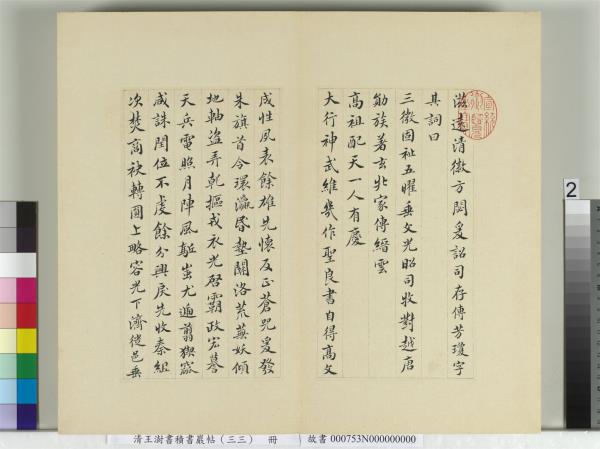 滋遠清徽方閟爰詔司存傳芳瓊字
其詞曰
三微固祉五曜垂文光昭司牧對越唐
勛族著玄牝家傳縉雲
高祖配天一人有慶
大行神武維幾作聖良書自得高文
成性風表餘雄先懷反正蒼兕爰發
朱旗首令環瀛昏墊關洛荒蕪妖傾
地軸盜弄乾樞戎衣光啓霸政宏謩
天兵電照月陣風駈蚩尤遁翦猰窳
咸誅閏位不虔餘分興戾先收秦組
次焚商袂轉圜上略容光下濟徙邑垂
2
清王澍書積書巖帖(三三) 冊
故書 000753N000000000